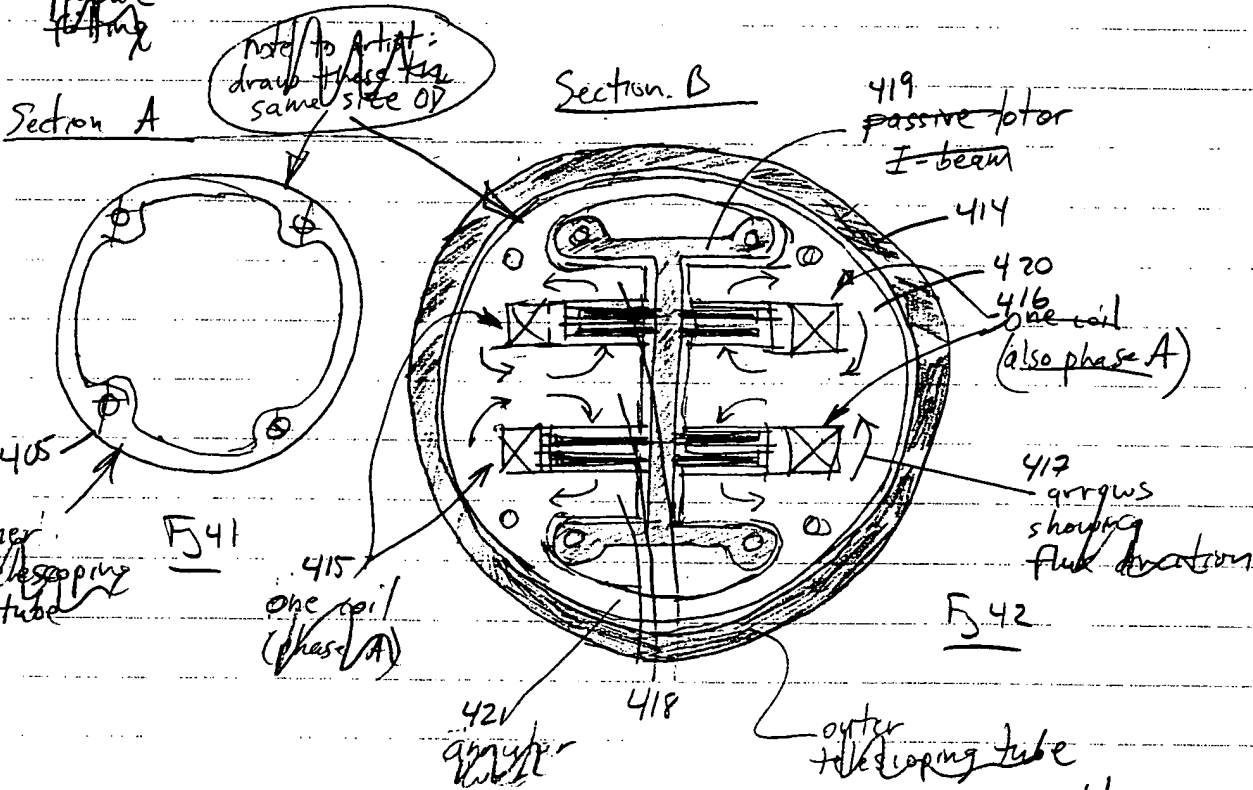 fitting
note to artist:
draw these the
same size OD
Section A
Section B
419
passive rotor
I-beam
414
420
416
one coil
(also phase A)
417
arrows
showing
flux direction
405
Fig 41
telescoping
tube
415
one coil
(phase A)
Fig 42
421
annular
418
outer
telescoping tube